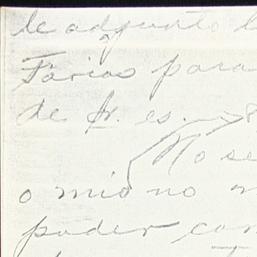 le adjunto l
Farias para
de fr. es.
No se
o mio no
poder con